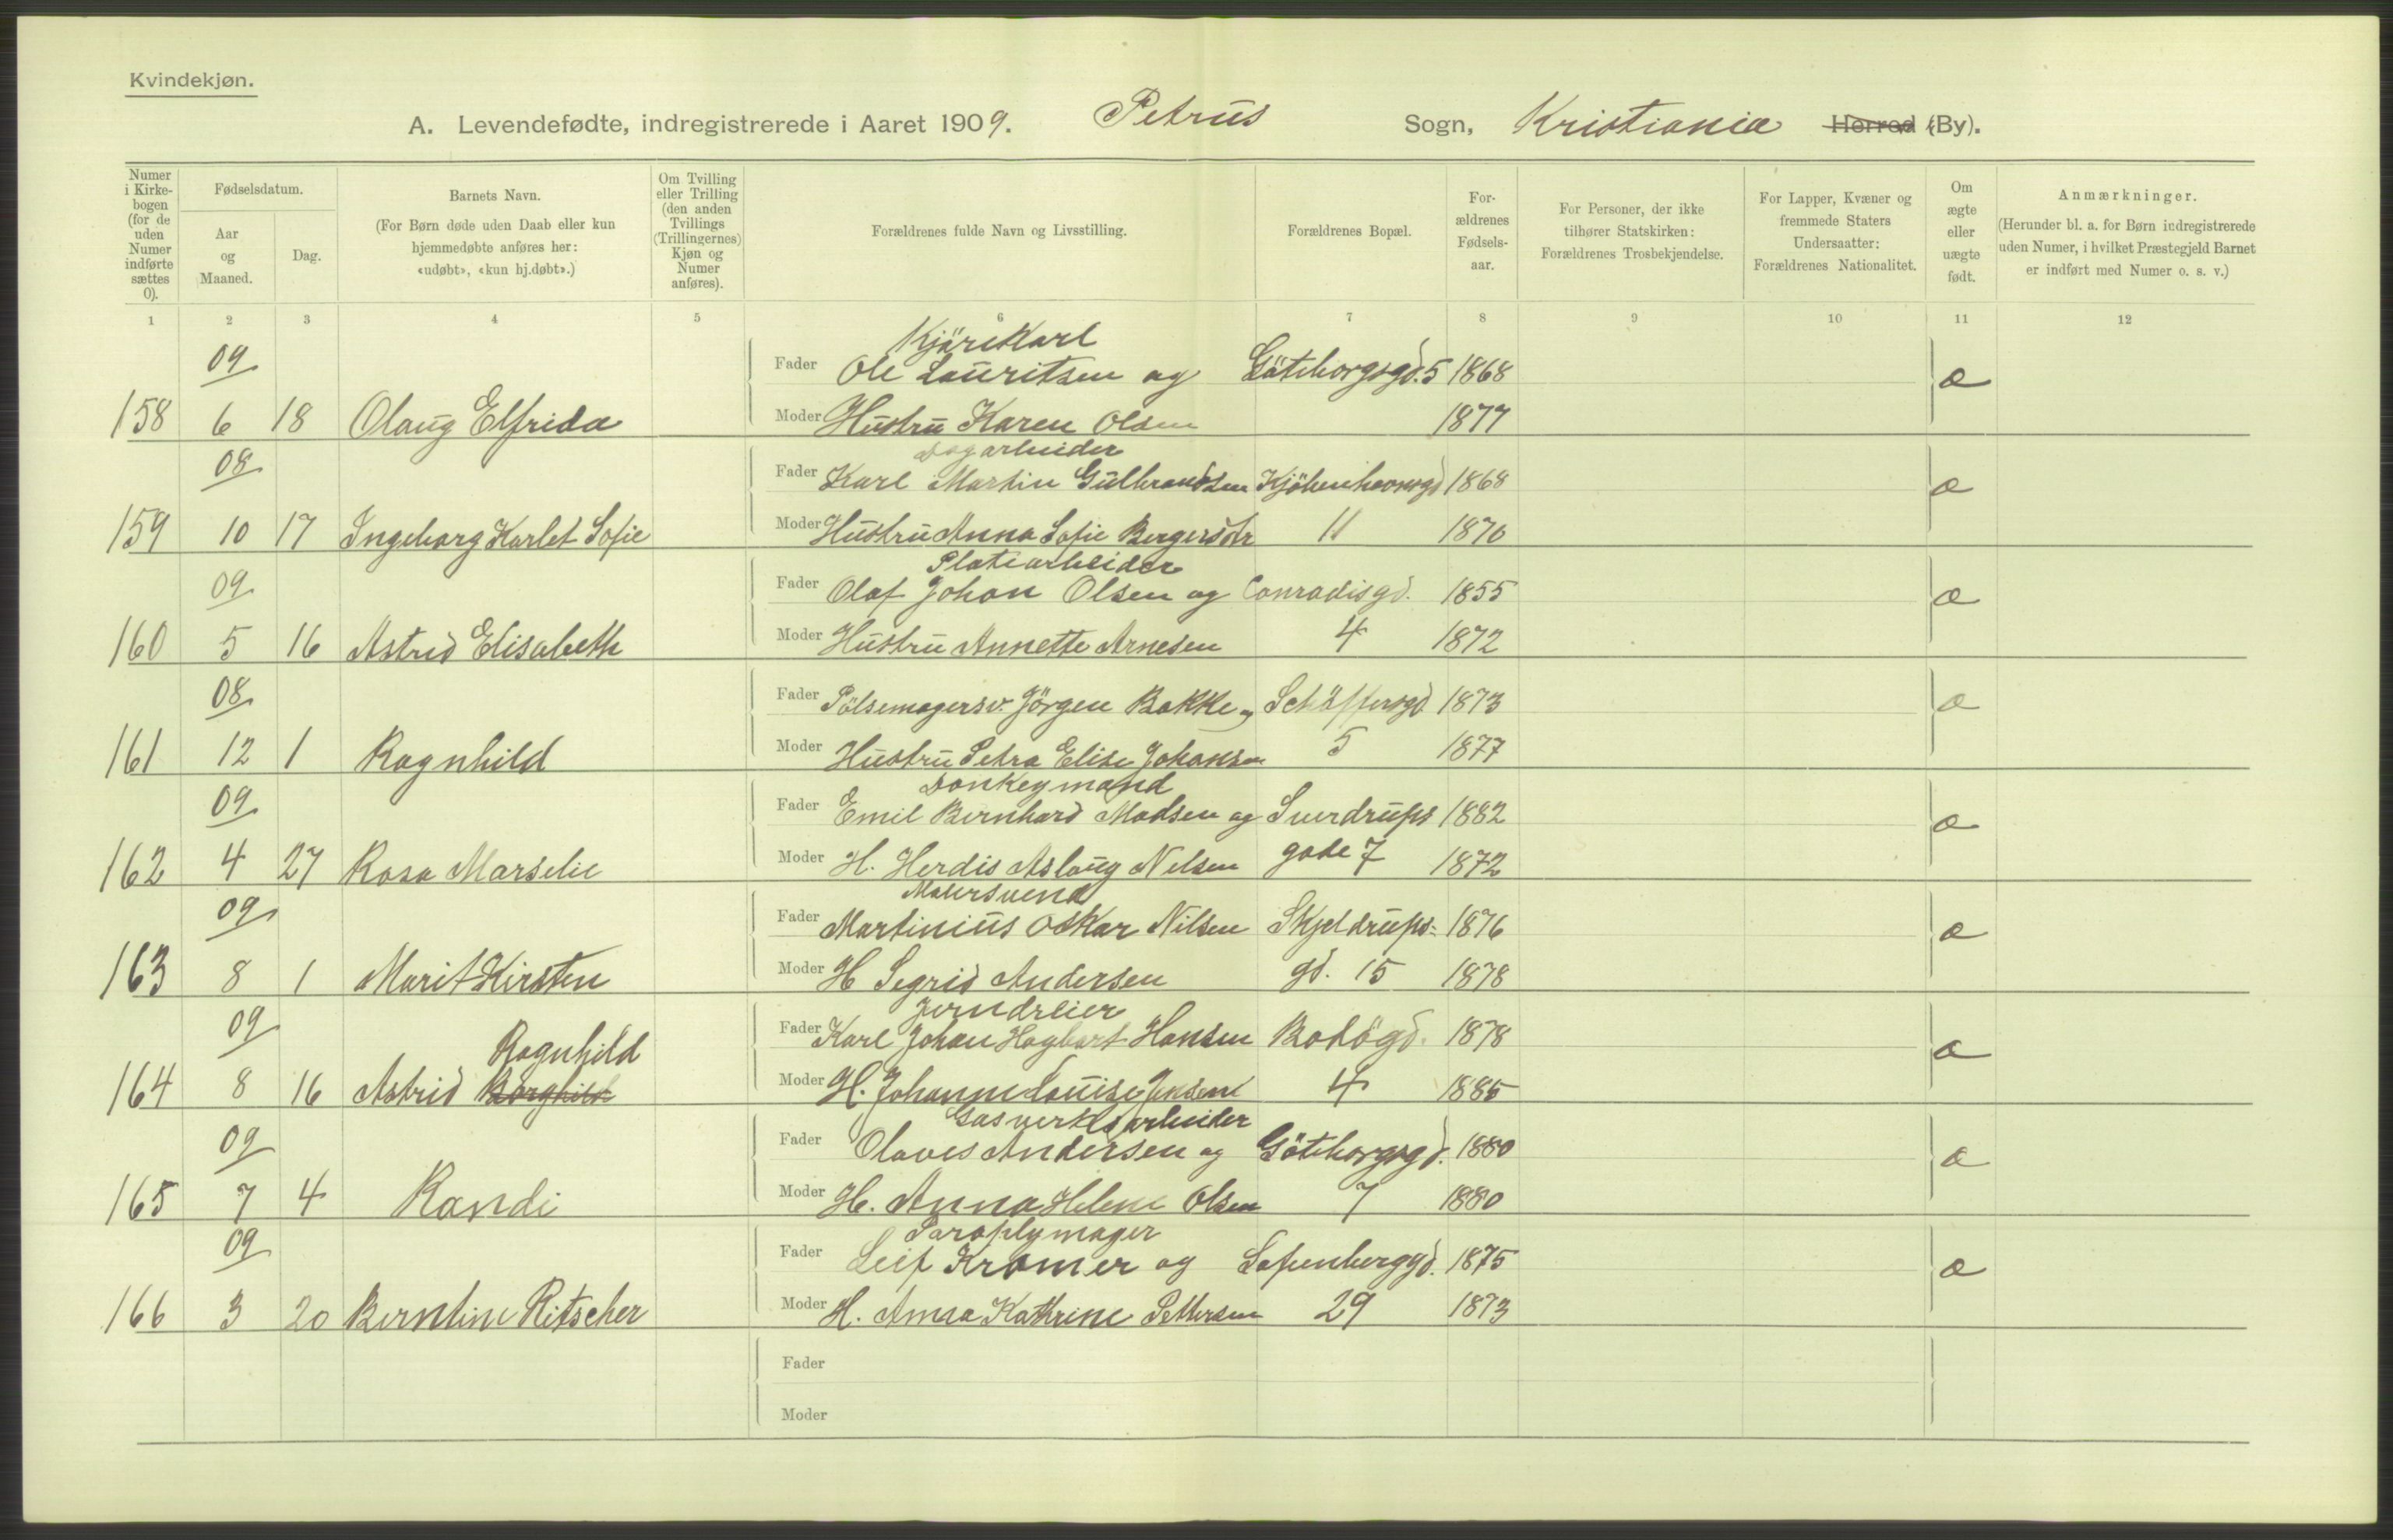 Kvindekjøn.
A. Levendefødte, indregistrerede i Aaret 1909. Petrus Sogn, Kristiania Herred (By).
Numer i Kirkebogen (for de uden Numer indførte sættes 0).
Fødselsdatum.
Aar og Maaned.
Dag.
Barnets Navn.
(For Børn døde uden Daab eller kun hjemmedøbte anføres her: «udøbt», «kun hj.døbt».)
Om Tvilling eller Trilling (den anden Tvillings (Trillingernes) Kjøn og Numer anføres).
Forældrenes fulde Navn og Livsstilling.
Forældrenes Bopæl.
For-ældrenes Fødsels-aar.
For Personer, der ikke tilhører Statskirken: Forældrenes Trosbekjendelse.
For Lapper, Kvæner og fremmede Staters Undersaatter: Forældrenes Nationalitet.
Om ægte eller uægte født.
Anmærkninger.
(Herunder bl. a. for Børn indregistrerede uden Numer, i hvilket Præstegjeld Barnet er indført med Numer o. s. v.)
1 2 3 4 5 6 7 8 9 10 11 12
Kjörekarl
09 Fader Ole Lauritsen og Göteborgsgd. 5 1868 æ
158 6 18 Olaug Elfrida Moder Hustru Karen Olsen 1877
Dagarbeider
08 Fader Karl Martin Gulbrandsen Kjöbenhavnsgd 1868 æ
159 10 17 Ingeborg Karlot Sofie Moder Hustru Anna Sofie Bergersdtr 11 1870
Platearbeider
09 Fader Olaf Johan Olsen og Conradisgd. 1855 æ
160 5 16 Astrid Elisabeth Moder Hustru Annette Arnesen 4 1872
08 Fader Pölsemagersv. Jörgen Bakke og Schäffersgd 1873 æ
161 12 1 Ragnhild Moder Hustru Petra Elise Johansen 5 1877
Donkeymand
09 Fader Emil Bernhard Madsen og Sverdrups 1882 æ
162 4 27 Rosa Marselie Moder H. Herdis Aslaug Nelsen gade 7 1872
Malersvend
09 Fader Martinius Oskar Nilsen Skjeldrups- 1876 æ
163 8 1 Marit Kirsten Moder H Segrid Andersen gd. 15 1878
Jerndreier
09 Ragnhild Fader Karl Johan Hagbart Hansen Bodögd. 1878 æ
164 8 16 Astrid Borghild Moder H. Johanne Louise Jensen 4 1885
Gasverksarbeider
09 Fader Olaves Andersen og Göteborgsgd. 1880 æ
165 7 4 Randi Moder H. Anna Helene Olsen 7 1880
Paraplymager
09 Fader Leif Kramer og Sofienberggd. 1875 æ
166 3 20 Berntine Ritscher Moder H. Anna Kathrine Pettersen 29 1873
Fader
Moder